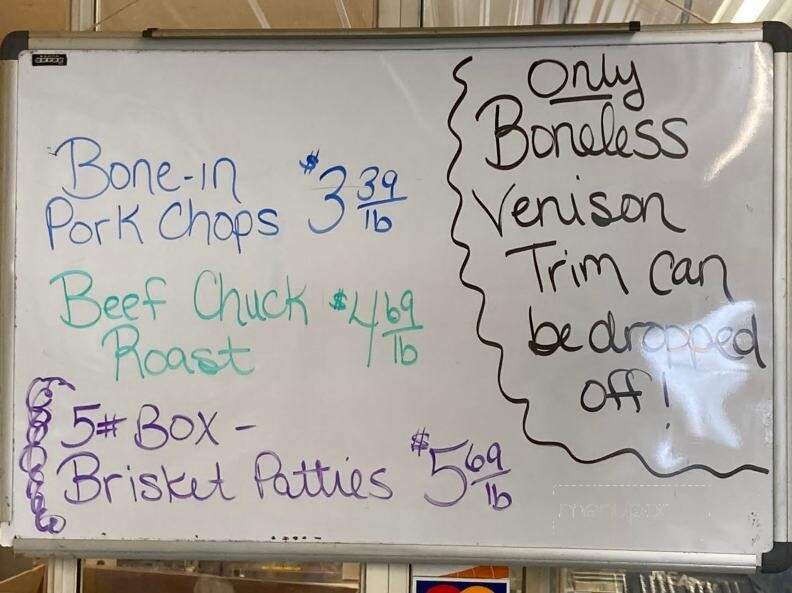 Bone-in
Pork Chops $3 39/lb
Beef Chuck
Roast $4 69/lb
5# Box -
Brisket Patties $5 69/lb
Only
Boneless
Venison
Trim can
be dropped
off!
menupix